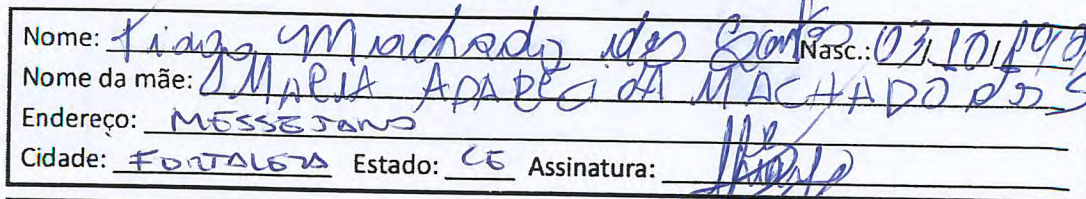 Nome: Tiago Machado dos Santos Nasc.: 03/10/
Nome da mãe: MARIA APARECIDA MACHADO DOS S
Endereço: MESSEJANO
Cidade: FORTALEZA Estado: CE Assinatura: